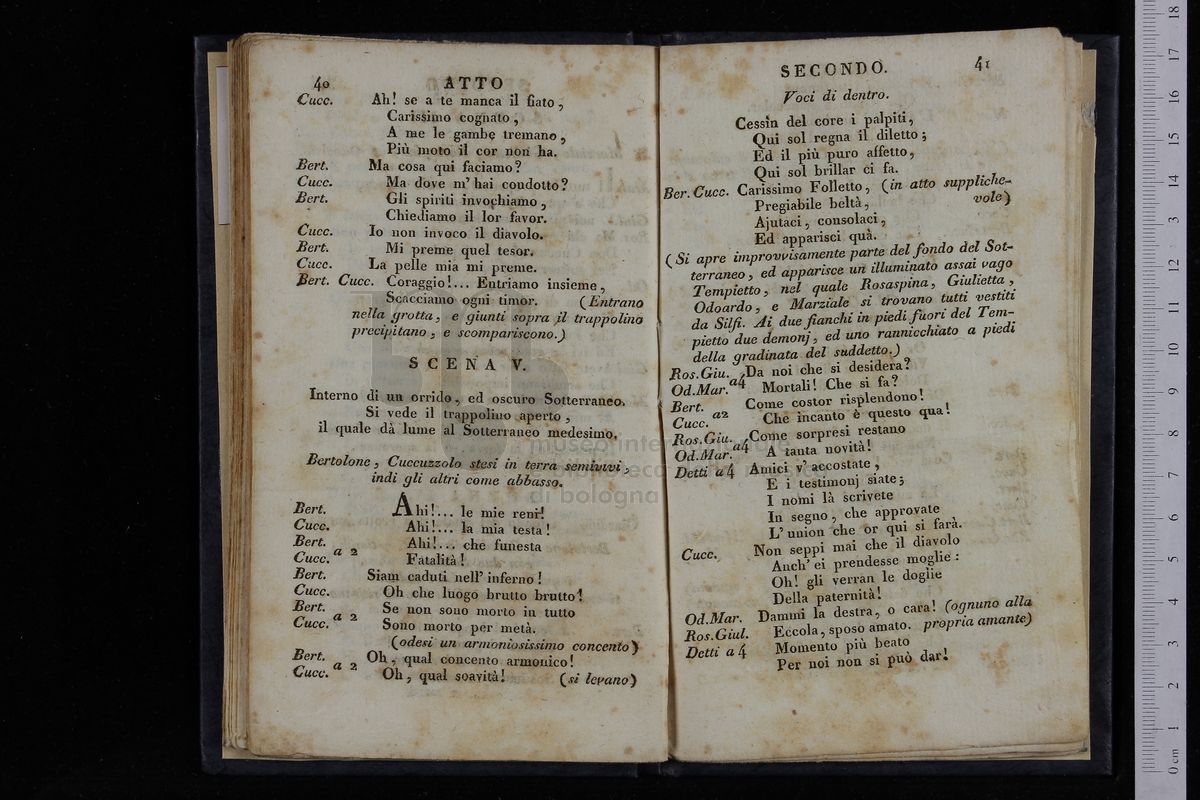 40 ATTO
Cucc. Ah! se a te manca il fiato,
Carissimo cognato,
A me le gambe tremano,
Più moto il cor non ha.
Bert. Ma cosa qui facciamo?
Cucc. Ma dove m' hai condotto?
Bert. Gli spiriti invochiamo,
Chiediamo il lor favor.
Cucc. Io non invoco il diavolo.
Bert. Mi preme quel tesor.
Cucc. La pelle mia mi preme.
Bert. Cucc. Coraggio!... Entriamo insieme,
Scacciamo ogni timor. (Entrano
nella grotta, e giunti sopra il trappolino
precipitano, e scompariscono.)
SCENA V.
Interno di un orrido, ed oscuro Sotterraneo.
Si vede il trappolino aperto,
il quale dà lume al Sotterraneo medesimo.
Bertolone, Cuccuzzolo stesi in terra semivivi,
indi gli altri come abbasso.
Bert. Ahi!... le mie reni!
Cucc. Ahi!... la mia testa!
Bert. Ahi!... che funesta
Cucc. a 2 Fatalità!
Bert. Siam caduti nell' inferno!
Cucc. Oh che luogo brutto brutto!
Bert. Se non sono morto in tutto
Cucc. a 2 Sono morto per metà.
(odesi un armoniosissimo concento)
Bert. Oh, qual concento armonico!
Cucc. a 2 Oh, qual soavità! (si levano)
SECONDO. 41
Voci di dentro.
Cessin del core i palpiti,
Qui sol regna il diletto;
Ed il più puro affetto,
Qui sol brillar ci fa.
Ber. Cucc. Carissimo Folletto, (in atto suppliche-
Pregiabile beltà, vole)
Ajutaci, consolaci,
Ed apparisci quà.
(Si apre improvvisamente parte del fondo del Sot-
terraneo, ed apparisce un illuminato assai vago
Tempietto, nel quale Rosaspina, Giulietta,
Odoardo, e Marziale si trovano tutti vestiti
da Silfi. Ai due fianchi in piedi fuori del Tem-
pietto due demonj, ed uno rannicchiato a piedi
della gradinata del suddetto.)
Ros. Giu. Da noi che si desidera?
Od. Mar. a 4 Mortali! Che si fa?
Bert. Come costor risplendono!
Cucc. a 2 Che incanto è questo qua!
Ros. Giu. Come sorpresi restano
Od. Mar. a 4 A tanta novità!
Detti a 4 Amici v' accostate,
E i testimonj siate;
I nomi là scrivete
In segno, che approvate
L' union che or qui si farà.
Cucc. Non seppi mai che il diavolo
Anch' ei prendesse moglie:
Oh! gli verran le doglie
Della paternità!
Od. Mar. Dammi la destra, o cara! (ognuno alla
Ros. Giul. Eccola, sposo amato. propria amante)
Detti a 4 Momento più beato
Per noi non si può dar!
museo internazionale
e biblioteca della musica
di bologna
0 cm 1 2 3 4 5 6 7 8 9 10 11 12 13 14 15 16 17 18